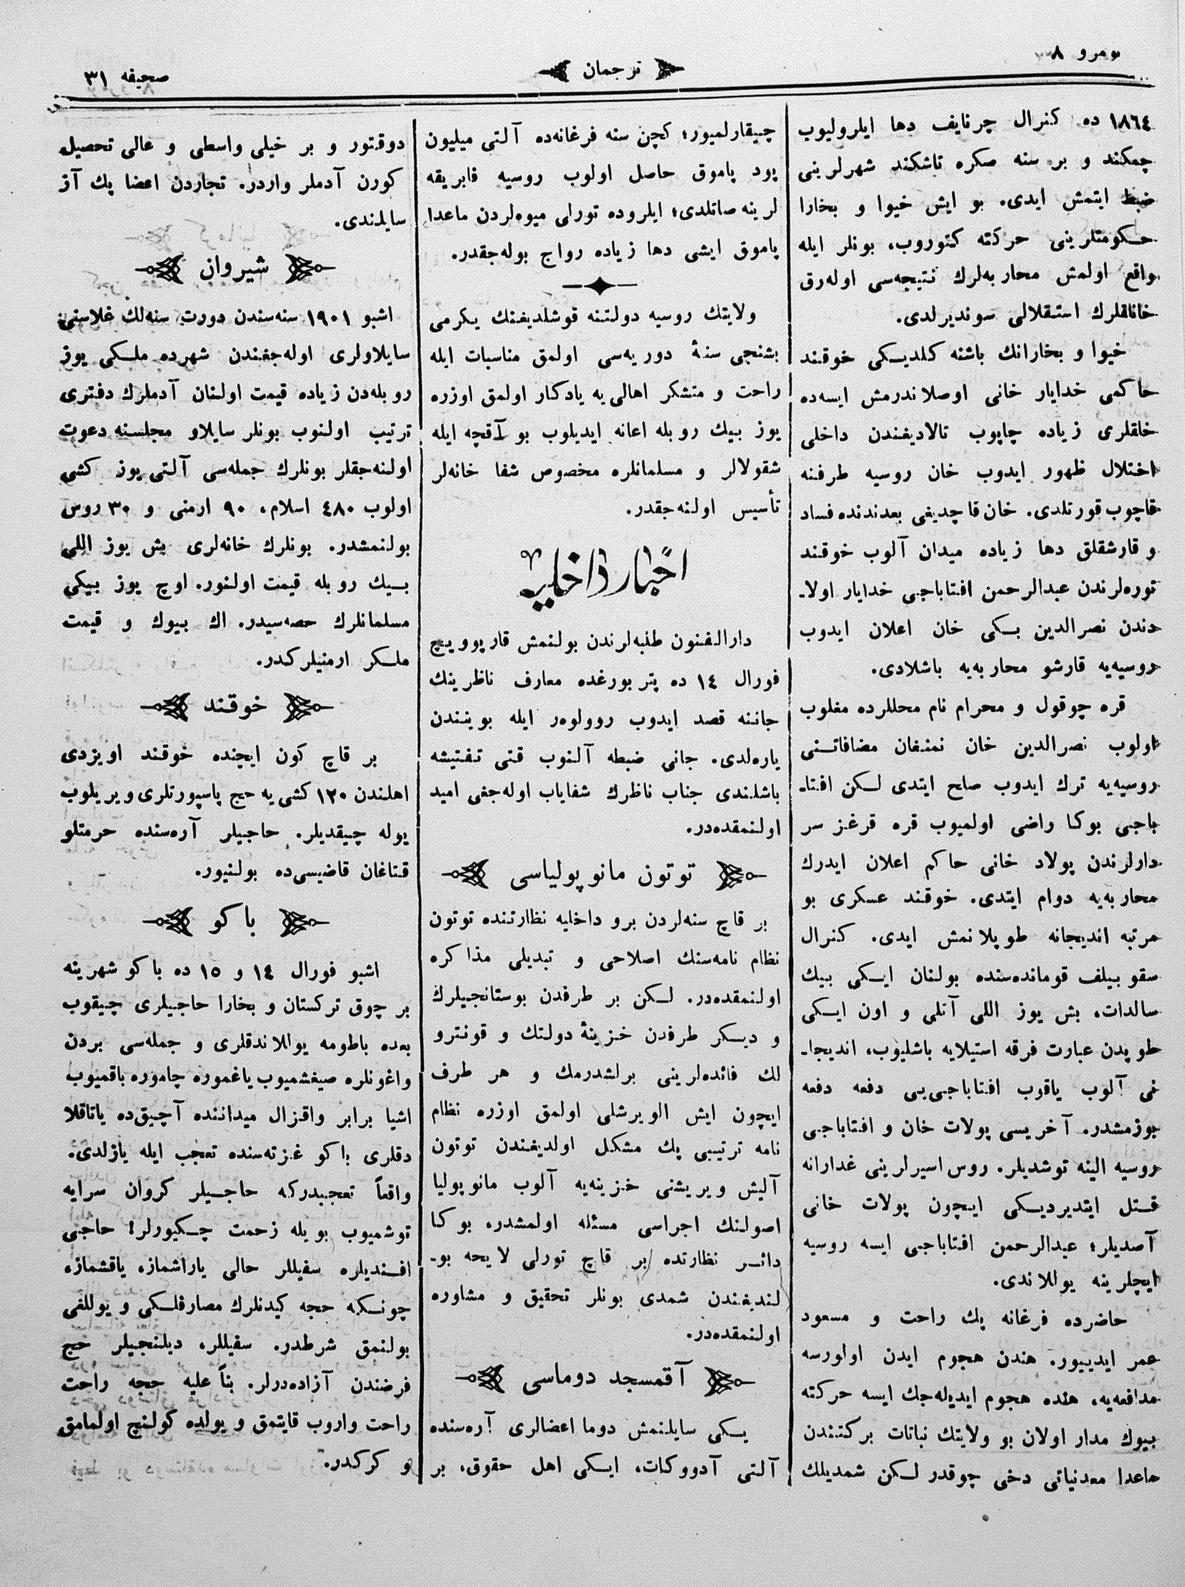 نومرو ٨
ترجمان
صحیفه ٣١
١٨٦٤ ده كنرال چرنایف دها ایلرولیوب
چمكند و بر سنه صكره تاشكند شهرلرینی
ضبط ایتمش ایدی. بو ایش خیوا و بخارا
حكومتلرینی حركته كتوروب، بونلر ایله
واقع اولمش محاربه‌لرك نتیجه‌سی اوله‌رق
خانلقلرك استقلالی سوندیرلدی.
خیوا و بخارانك باشنه كلدیكی خوقند
حاكمی خدایار خانی اوصلاندرمش ایسه‌ده
خلقلری زیاده چاپوب تالادیغندن داخلی
اختلال ظهور ایدوب خان روسیه طرفنه
قاچوب قورتلدی. خان قاچدیغی بعدندنده فساد
و قارشقلق دها زیاده میدان آلوب خوقند
توره‌لرندن عبدالرحمن افتاباجی خدایار اولا-
دندن نصرالدین بكی خان اعلان ایدوب
روسیه‌یه قارشو محاربه‌یه باشلادی.
قره چوقول و محرام نام محللرده مغلوب
اولوب نصرالدین خان نمنغان مضافاتنی
روسیه‌یه ترك ایدوب صلح ایتدی لكن افتا-
باجی بوكا راضی اولمیوب قره قرغز سر
دارلرندن پولاد خانی حاكم اعلان ایدرك
محاربه‌یه دوام ایتدی. خوقند عسكری بو
مرتبه اندیجانه طوپلانمش ایدی. كنرال
سقوبیلف قومانده‌سنده بولنان ایكی بیك
سالدات، بش یوز اللی آتلی و اون ایكی
طوپدن عبارت فرقه استیلایه باشلیوب، اندیجا-
نی آلوب یاقوب افتاباجی‌یی دفعه دفعه
بوزمشدر. آخریسی پولات خان و افتاباجی
روسیه الینه توشدیلر. روس اسیرلرینی غدارانه
قتل ایتدیردیكی ایچون پولات خانی
آصدیلر؛ عبدالرحمن افتاباجی ایسه روسیه
ایچلرینه یوللاندی.
حاضرده فرغانه پك راحت و مسعود
عمر ایدییور. هندن هجوم ایدن اولورسه
مدافعه‌یه، هنده هجوم ایدیله‌جك ایسه حركته
بیوك مدار اولان بو ولایتك نباتات بركتندن
ماعدا معدنیاتی دخی چوقدر لكن شمدیلك
چیقارلمیور؛ كچن سنه فرغانه‌ده آلتی میلیون
پود پاموق حاصل اولوب روسیه فابریقه
لرینه صاتلدی؛ ایلروده تورلی میوه‌لردن ماعدا
پاموق ایشی دها زیاده رواج بوله‌جقدر.
ولایتك روسیه دولتنه قوشلدیغنك یكرمی
بشنجی سنهٔ دوریه‌سی اولمق مناسبات ایله
راحت و متشكر اهالی‌یه یادكار اولمق اوزره
یوز بیك روبله اعانه ایدیلوب بو آقچه ایله
شقولالر و مسلمانلره مخصوص شفا خانه‌لر
تأسیس اولنه‌جقدر.
اخبار داخلیه
دارالفنون طلبه‌لرندن بولنمش قارپوویچ
فورال ١٤ ده پتربورغده معارف ناظرینك
جاننه قصد ایدوب روولوور ایله بویندن
یاره‌لدی. جانی ضبطه آلنوب قتی تفتیشه
باشلندی جناب ناظرك شفایاب اوله‌جغی امید
اولنمقده‌در.
توتون مانوپولیاسی
بر قاچ سنه‌لردن برو داخلیه نظارتنده توتون
نظام نامه‌سنك اصلاحی و تبدیلی مذاكره
اولنمقده‌در. لكن بر طرفدن بوستانجیلرك
و دیكر طرفدن خزینهٔ دولتك و قونترو
لك فائده‌لرینی برلشدرمك و هر طرف
ایچون ایش الویرشلی اولمق اوزره نظام
نامه ترتیبی پك مشكل اولدیغندن توتون
آلیش ویریشنی خزینه‌یه آلوب مانوپولیا
اصولنك اجراسی مسئله اولمشدر، بوكا
دائر نظارتده بر قاچ تورلی لایحه بو-
لندیغندن شمدی بونلر تحقیق و مشاوره
اولنمقده‌در.
آقمسجد دوماسی
یكی سایلنمش دوما اعضالری آره‌سنده
آلتی آدووكات، ایكی اهل حقوق، بر
دوقتور و بر خیلی واسطی و عالی تحصیل
كورن آدملر واردر. تجاردن اعضا پك آز
سایلندی.
شیروان
اشبو ١٩٠١ سنه‌سندن دورت سنه‌لك غلاسنی
سایلاولری اوله‌جغندن شهرده ملكی یوز
روبله‌دن زیاده قیمت اولنان آدملرك دفتری
ترتیب اولنوب بونلر سایلاو مجلسنه دعوت
اولنه‌جقلر بونلرك جمله‌سی آلتی یوز كشی
اولوب ٤٨٠ اسلام، ٩٠ ارمنی و ٣٠ روس
بولنمشدر. بونلرك خانه‌لری بش یوز اللی
بیك روبله قیمت اولنور. اوچ یوز بیكی
مسلمانلرك حصه‌سیدر. اك بیوك و قیمت
ملكر ارمنیلركدر.
خوقند
بر قاچ كون ایچنده خوقند اویزدی
اهلندن ١٢٠ كشی‌یه حج پاسپورتلری ویریلوب
یوله چیقدیلر. حاجیلر آره‌سنده حرمتلو
قتاغان قاضیسی‌ده بولنیور.
باكو
اشبو فورال ١٤ و ١٥ ده باكو شهرینه
بر چوق تركستان و بخارا حاجیلری چیقوب
بعده باطومه یوللاندقلری و جمله‌سی بردن
واغونلره صیغشمیوب یاغموره چاموره باقمیوب
اشیا برابر واقزال میداننده آچیق‌ده یاتاقلا
دقلری باكو غزته‌سنده تعجب ایله یازلدی.
واقعاً تعجبدركه حاجیلر كروان سرایه
توشمیوب بویله زحمت چكیورلر! حاجی
افندیلره سفیللر حالی یاراشمازه یاقشمازه
چونكه حجه كیدنلرك مصارفلكی و یوللغی
بولنمق شرطدر. سفیللر، دیلنجیلر حج
فرضندن آزاده‌درلر. بناً علیه حجه راحت
راحت واروب قایتمق و یولده كولنچ اولمامق
و كركدر.